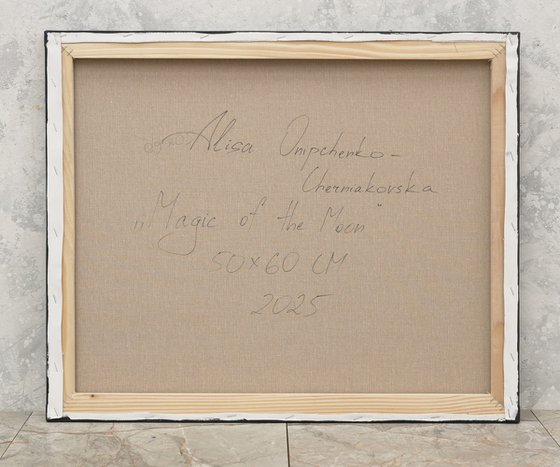 Alisa Onipchenko-
Cherniakovska
„Magic of the Moon"
50x60 CM
2025